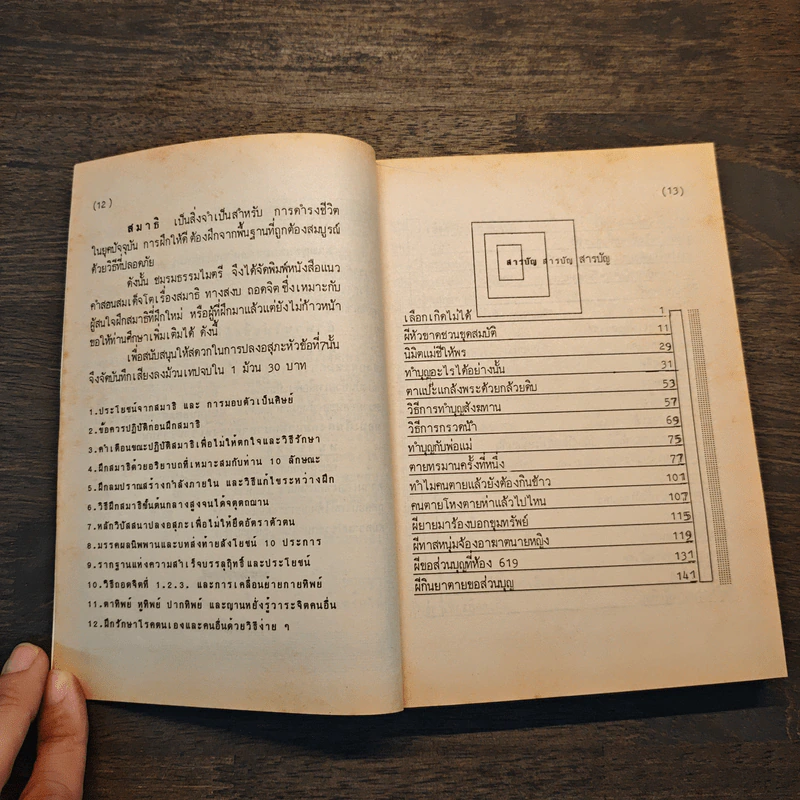 (12)
สมาธิ เป็นสิ่งจำเป็นสำหรับ การดำรงชีวิต
ในยุคปัจจุบัน การฝึกให้ดี ต้องฝึกจากพื้นฐานที่ถูกต้องสมบูรณ์
ด้วยวิธีที่ปลอดภัย
ดังนั้น ชมรมธรรมไมตรี จึงได้จัดพิมพ์หนังสือแนว
คำสอนสมเด็จโตเรื่องสมาธิ ทางสงบ ถอดจิต ซึ่งเหมาะกับ
ผู้สนใจฝึกสมาธิที่ฝึกใหม่ หรือผู้ที่ฝึกมาแล้วแต่ยังไม่ก้าวหน้า
ขอให้ท่านศึกษาเพิ่มเติมได้ ดังนี้
เพื่อสนับสนุนให้สดวกในการปลงอสุภะหัวข้อที่7นั้น
จึงจัดบันทึกเสียงลงม้วนเทปจบใน 1 ม้วน 30 บาท
1.ประโยชน์จากสมาธิ และ การมอบตัวเป็นศิษย์
2.ข้อควรปฏิบัติก่อนฝึกสมาธิ
3.คำเตือนขณะปฏิบัติสมาธิเพื่อไม่ให้ตกใจและวิธีรักษา
4.ฝึกสมาธิด้วยอริยาบถที่เหมาะสมกับท่าน 10 ลักษณะ
5.ฝึกลมปราณสร้างกำลังภายใน และวิธีแก้ไขระหว่างฝึก
6.วิธีฝึกสมาธิขั้นต้นกลางสูงจนได้จตุตถฌาน
7.หลักวิปัสสนาปลงอสุภะเพื่อไม่ให้ยึดอัตราตัวตน
8.มรรคผลนิพพานและบทส่งท้ายสังโยชน์ 10 ประการ
9.รากฐานแห่งความสำเร็จบรรลุฤทธิ์และประโยชน์
10.วิธีถอดจิตที่ 1.2.3. และการเคลื่อนย้ายกายทิพย์
11.ตาทิพย์ หูทิพย์ ปากทิพย์ และญานหยั่งรู้วาระจิตคนอื่น
12.ฝึกรักษาโรคตนเองและคนอื่นด้วยวิธีง่าย ๆ
(13)
สารบัญ สารบัญ สารบัญ
เลือกเกิดไม่ได้ 1
ผีหัวขาดชวนขุดสมบัติ 11
นิมิตแม่ชีให้พร 29
ทำบุญอะไรได้อย่างนั้น 31
ตาแป๊ะแกล้งพระด้วยกล้วยดิบ 53
วิธีการทำบุญสังฆทาน 57
วิธีการกรวดน้ำ 69
ทำบุญกับพ่อแม่ 75
ตายทรมานครั้งที่หนึ่ง 77
ทำไมคนตายแล้วยังต้องกินข้าว 101
คนตายโหงตายห่าแล้วไปไหน 107
ผียายมาร้องบอกขุมทรัพย์ 115
ผีทาสหนุ่มจ้องอาฆาตนายหญิง 119
ผีขอส่วนบุญที่ห้อง 619 131
ผีกินยาตายขอส่วนบุญ 141